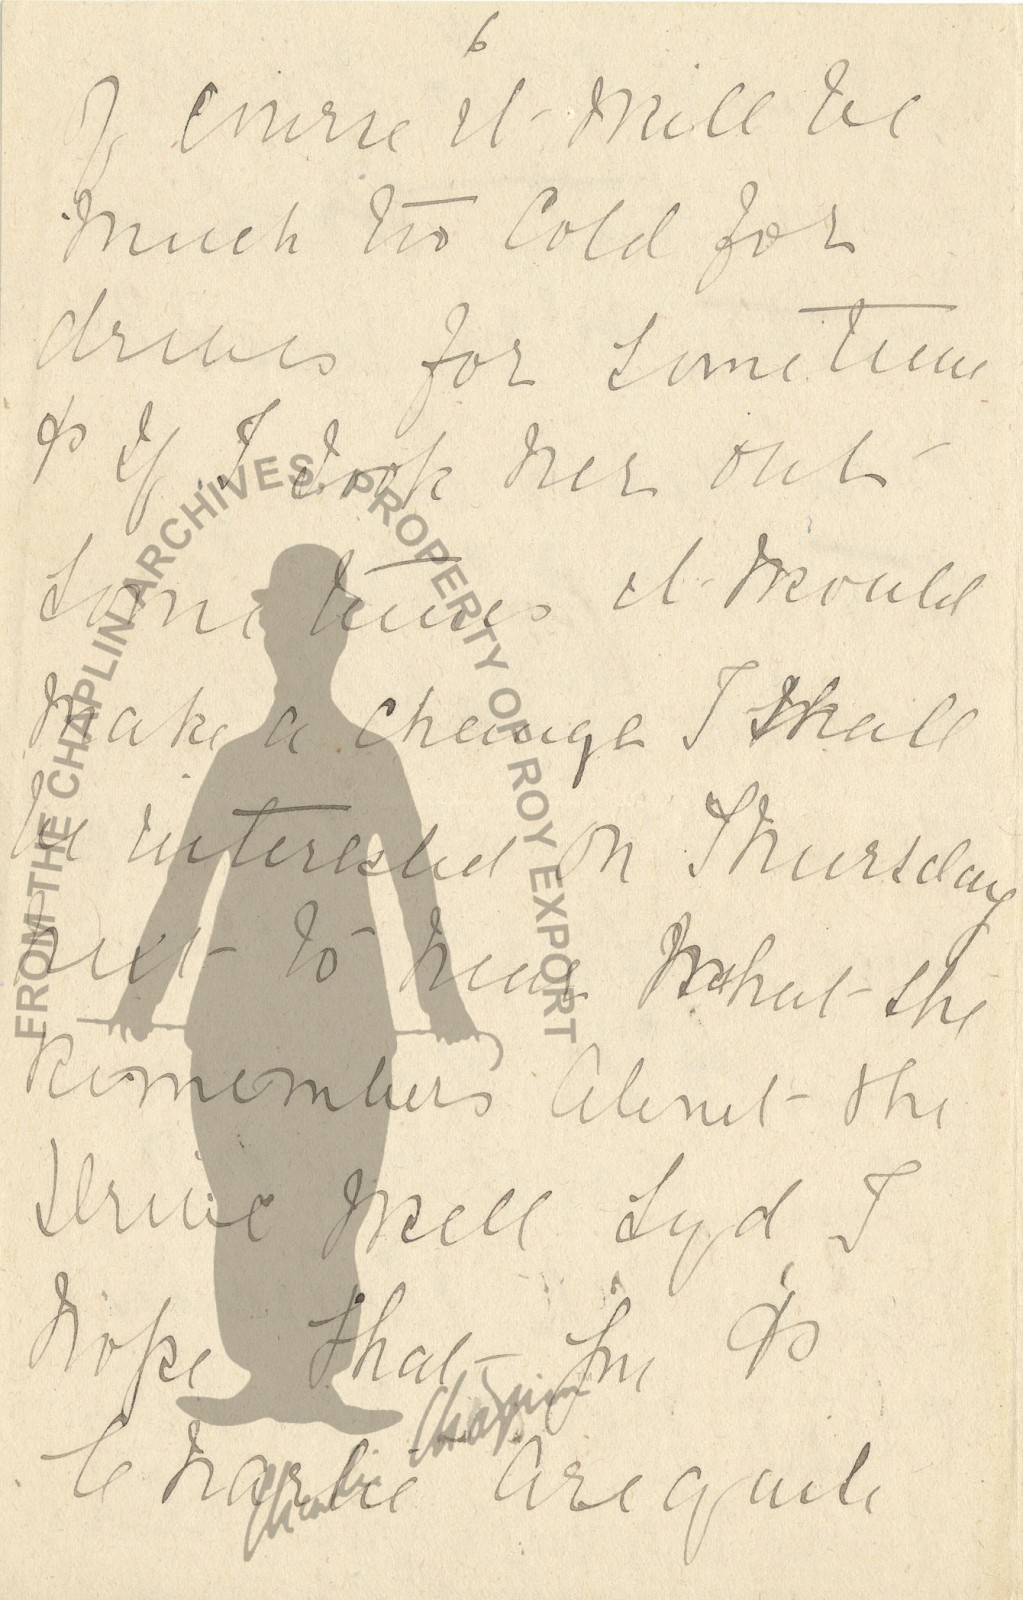 6
Of course it will be
much too cold for
drives for sometime
& if I took her out
sometimes it would
make a change I shall
be interested on Thursday
next to hear what she
remembers about the
Drive Well Syd I
hope that you &
Charlie are quite
FROM THE CHAPLIN ARCHIVES, PROPERTY OF ROY EXPORT
Charlie Chaplin